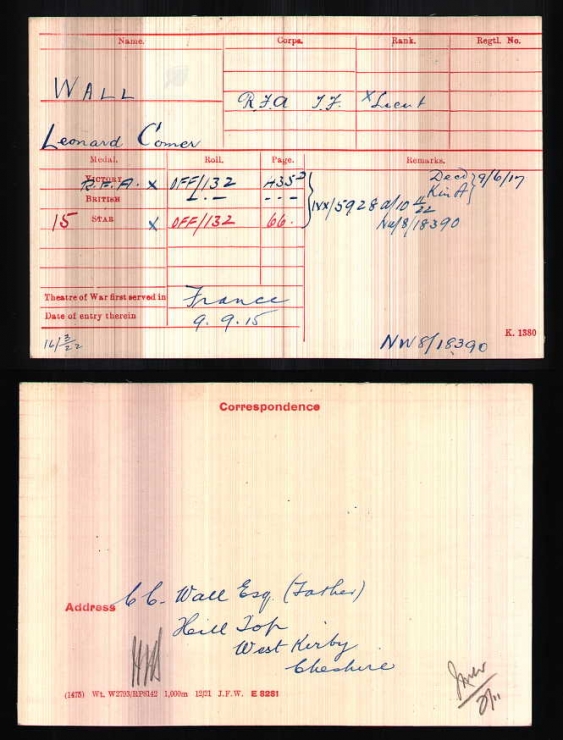 Name. Corps. Rank. Regtl. No.
WALL
R.F.A T.F. X Lieut
Leonard Comer
Medal. Roll. Page. Remarks.
VICTORY R.F.A. X OFF/132 435 Decd 9/6/17
BRITISH - - - Kin A
IVX/5928 NW/8/18390
15 STAR X OFF/132 66.
Theatre of War first served in France
Date of entry therein 9.9.15
K. 1380
NW8/18390
Correspondence
Address C C. Wall Esq. (Father)
Hill Top
West Kirby
Cheshire
(1475) Wt. W2793/RP8142 1,000m 12/21 J.F.W. E 8281